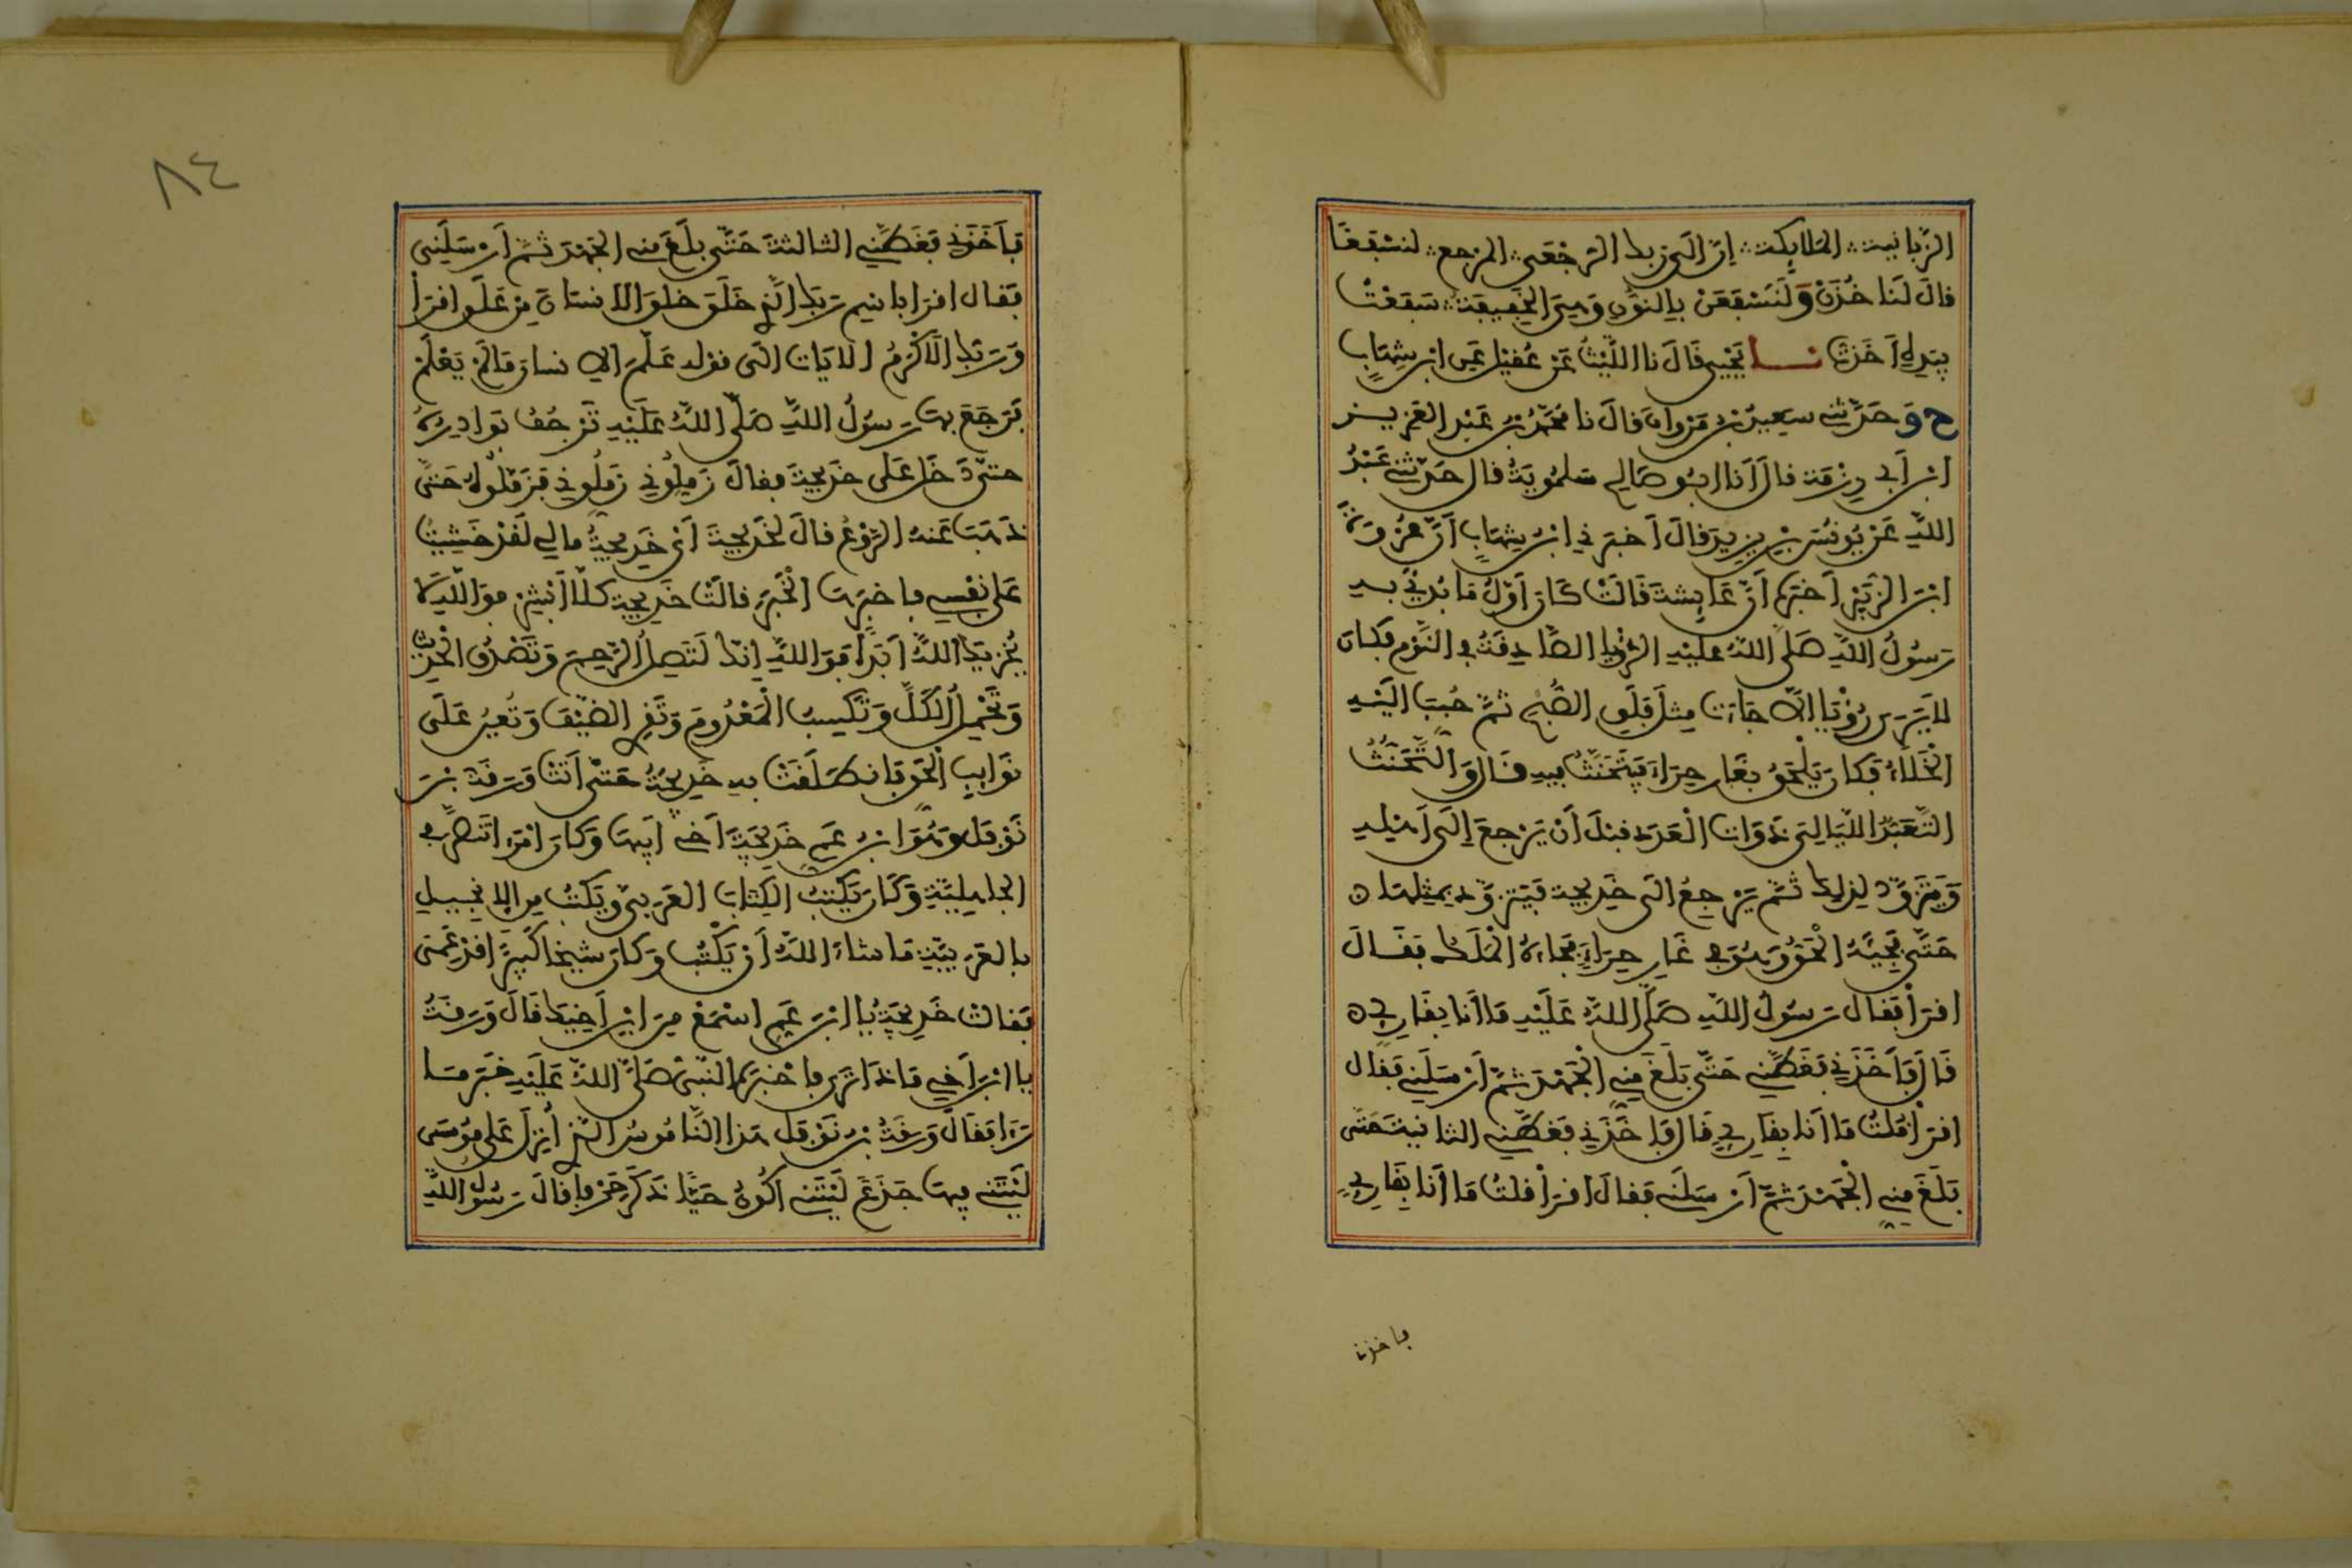 الزَّبانية الملايكة إِنَّ إلى ربك الرُّجْعَى المرجع لنسفعًا
قالَ لَنا خُذَنْ وَلَنَسْفَعَنْ بِالنُّونِ وَهِيَ الخَفِيفَةُ سَفَعْتُ
بِيَدِهِ أَخَذتُ نا يَحْيى قَالَ نا اللَّيْثُ عَنْ عُقيْلٍ عَنِ ابْنِ شِهَابٍ
ح وَحَدَّثني سعيدُ بْنُ مَرْوانَ قالَ نا مُحَمَّدُ بْنُ عَبْدِ العَزِيزِ
ابْنِ أَبي رِزْمَة قالَ أَنا ابُو صَالِحٍ سَلمُويَةُ قال حَدَّثني عَبْدُ
اللَّهِ عَنْ يُونُسَ بْنِ يزِيدَ قالَ أَخبَرَنِي ابْنُ شِهَابٍ أَنَّ عُرْوَةَ
ابْنَ الزُّبَيْرِ أَخبَرَهُ أَنَّ عَايِشَةَ قَالَتْ كَانَ أَوَّلُ مَا بُدِئَ بِهِ
رَسُولُ اللَّهِ صَلَّى اللَّهُ عليْهِ الرُّؤْيا الصَّادِقَةُ في النَّوْمِ فَكَانَ
لا يَرَى رُؤْيَا إلَّا جَاءَتْ مِثلَ فَلَقِ الصُّبْحِ ثمَّ حُبِّبَ إِلَيْهِ
الْخَلَاءُ فَكانَ يَلْحَقُ بغَارِ حِرَاءٍ فَيَتَحَنَّثُ فِيهِ قَالَ وَالتَّحَنُّثُ
التَّعَبُّدُ اللَّيَالِيَ ذَوَاتِ الْعَدَدِ قبْلَ أَنْ يَرْجِعَ إِلَى أَهْلِهِ
وَيَتَزَوَّدُ لِذلِكَ ثُمَّ يَرْجِعُ إلَى خَدِيجة فَيَتَزَوَّدُ بِمِثلِهَا
حَتَّى فَجِيَهُ الْحَقُّ وَهُوَ في غَارِ حِرَاءٍ فَجَاءَهُ الْمَلَكُ فَقَالَ
اقرَأْ فَقال رَسُولُ اللَّهِ صَلَّى اللَّهُ عَلَيْهِ مَا أَنَا بِقَارِئٍ
قَالَ فَأَخَذَنِي فَغَطَّنِي حَتَّى بَلَغَ مِنِّي الْجَهْدَ ثُمَّ أَرْسَلَنِي فَقال
اقرَأْ قلتُ مَا أَنا بِقارِئٍ قَالَ فَأَخَذَنِي فَغَطَّنِي الثانيةَ حَتَّى
بَلَغَ مِنِّي الْجَهْدَ ثُمَّ أَرْسَلَني فَقالَ اقرَأْ قلتُ مَا أَنَا بِقَارِئٍ
فاخذني
٨٤
فَأَخَذَنِي فَغَطَّنِي الثالثةَ حَتَّى بلَغَ مني الجَهْدَ ثُمَّ أَرْسَلَنِي
فَقال اقرَا باسم رَبِّكَ الَّذِي خَلَقَ خلقَ الانسانَ مِنْ عَلَقٍ اقرَأْ
وَرَبُّكَ الَاكْرَمُ الايَات الَى قوْله عَلَّمَ الانسانَ مَا لَمْ يَعْلَمْ
فَرَجَعَ بهَا رَسُولُ اللَّهِ صَلَّى اللَّهُ عَلَيْهِ تَرْجُفُ بَوَادِرُهُ
حتَّى دَخَلَ عَلَى خَدِيجةَ فقالَ زَمِّلُونِي زَمِّلُونِي فَزَمَّلُوهُ حَتَّى
ذَهَبَ عَنه الرَّوْعُ قالَ لخَدِيجةَ أَيْ خَدِيجةُ مالِي لَقَدْ خَشِيتُ
عَلى نفْسِي فاخبَرَهَا الْخَبَرَ قالتْ خَدِيجة كلَّا أَبْشِرْ فوَاللَّهِ لَا
يُخْزِيكَ اللَّهُ أَبَدًا فَوَاللَّهِ إنكَ لَتَصِلُ الرَّحِمَ وَتَصْدُقُ الحَدِيثَ
وَتَحْمِلُ الْكَلَّ وَتَكْسِبُ الْمَعْدُومَ وَتَقْرِي الضَّيْفَ وَتُعِينُ عَلَى
نَوَايِبِ الْحَقِّ فَانطَلَقَتْ بِهِ خَدِيجَةُ حَتَّى أَتَتْ وَرَقَةَ بْنَ
نَوْفَلٍ وَهُوَ ابْنُ عَمِّ خَدِيجَةَ أَخِي أَبِيهَا وَكَانَ امْرَأً تَنَصَّرَ في
الجاهِلِيَّةِ وَكَانَ يَكْتُبُ الْكِتَابَ العَرَبيَّ وَيَكْتُبُ مِن الِانْجِيلِ
بالعَرَبِيَّةِ مَا شاءَ اللَّهُ أَنْ يَكْتُبَ وَكانَ شيخًا كَبِيرًا قَدْ عَمِيَ
فَقالتْ خَدِيجَةُ يا ابْنَ عَمِّ اسْمَعْ مِنَ ابْنِ أَخِيكَ قَالَ وَرَقَةُ
يا ابْنَ أَخِي مَاذَا تَرَى فأَخبَرَهُ النَّبِيُّ صَلَّى اللَّهُ عَلَيْهِ خَبَرَ مَا
رَءَا فَقَالَ وَرَقَةُ بْنُ نَوْفَلٍ هَذا النَّامُوسُ الَّذِي أُنْزِلَ عَلَى مُوسَى
لَيْتَنِي فِيهَا جَذَعٌ لَيْتَنِي أَكُونُ حَيًّا ذَكَرَ حَرْفًا قَالَ رَسُولُ اللَّهِ